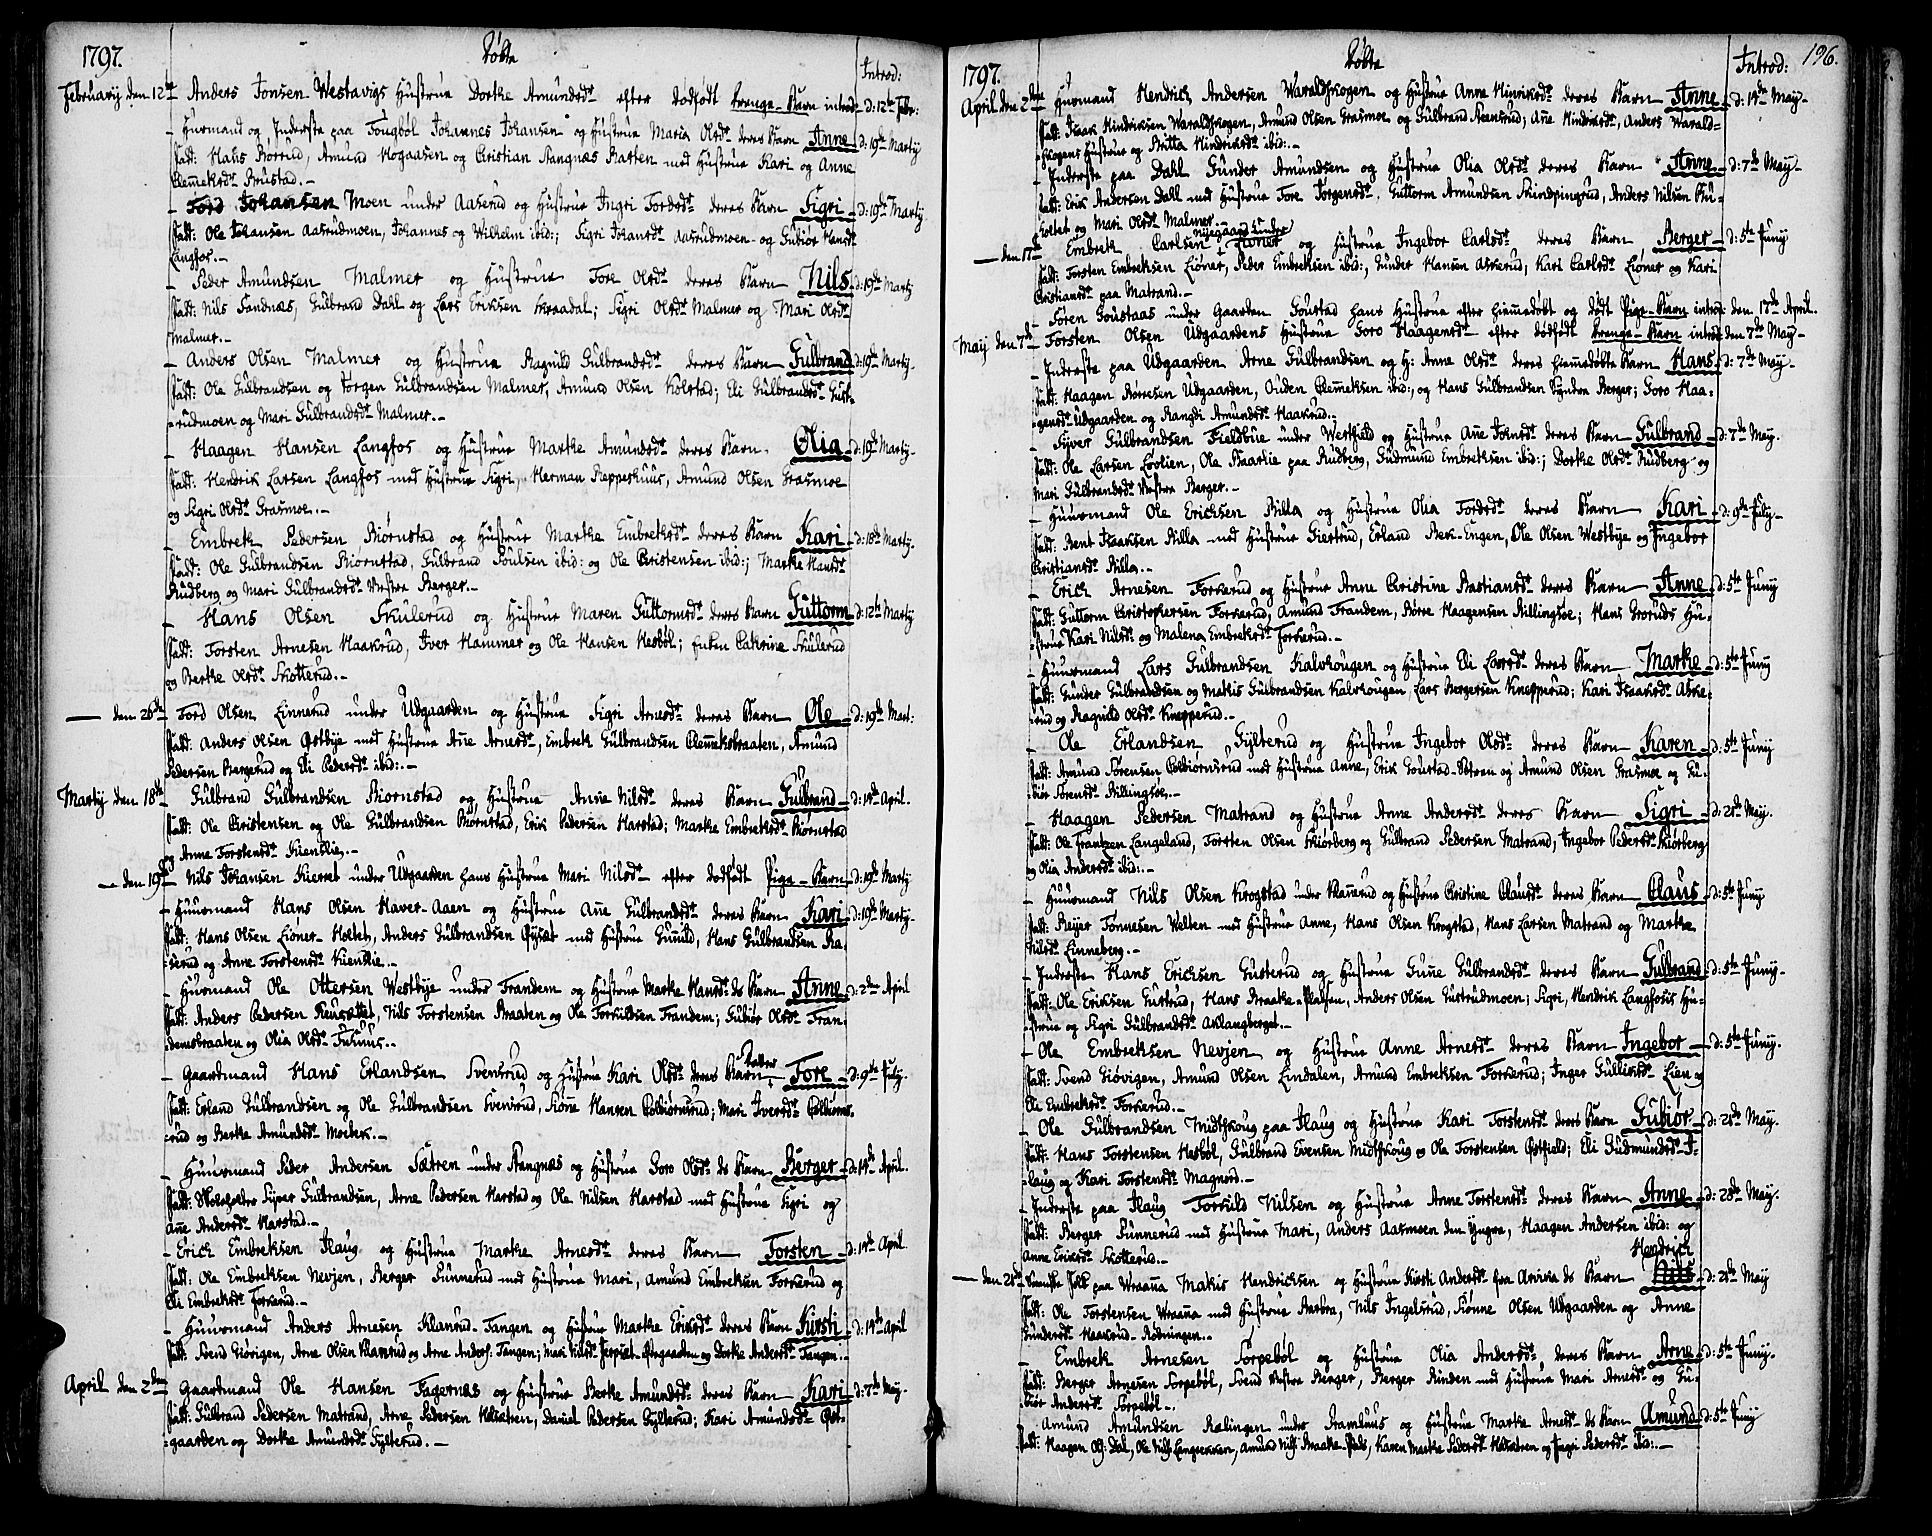 1797. Døbte Introd:
Februarij den 12te Anders Jonsen Westavigs Hustrue Dorthe Amundsdr. efter dødfødt Drenge-Barn introd: d: 12te Febr:
- Huusmand og Inderste paa Tougbøl Johannes Johansen og Hustrue Maria Olsdr. deres Barn Anne d: 19de Martij
Fadd: Hans Borrud, Amund Hogaasen og Christian Stangnæs Bratten med Hustrue Kari og Anne
Clemetsdr. Brustad.-
- Tord Johansen Moen under Aaserud og Hustrue Ingri Tordsdr. deres Barn Sigri d: 19de Martij
Fadd: Ole Johansen Aasrudmoen, Johannes og Wilhelm ibid:; Sigri Johansdr. Aasrudmoen og Gubiør Hansdr.
Langfos.-
- Peder Amundsen Malmer og Hustrue Tore Olsdr. deres Barn Nils d: 19de Martij
Fadd: Nils Sandnæs, Gulbrand Dahl og Lars Eriksen Skraadal; Sigri Olsdr. Malmer og Mari Olsdr.
Malmer.-
- Anders Olsen Malmer og Hustrue Ragnild Gulbrandsdr. deres Barn Gulbrand d: 19de Martij.
Fadd: Ole Gulbrandsen og Jørgen Gulbrandsen Malmer, Amund Olsen Kolstad; Eli Gulbrandsdr. Gust-
rudmoen og Mari Gulbrandsdr. Malmer.-
- Haagen Hansen Langfos og Hustrue Marthe Amundsdr. deres Barn Olia d: 19de Martij-
Fadd: Hendrik Larsen Langfos med Hustrue Sigri, Herman Reppeshuus, Amund Olsen Grasmoe
og Sigri Olsdr. Grasmoe.-
- Embret Pedersen Biørnstad og Hustrue Marthe Embretsdr. deres Barn Kari d: 18de Martij.
Fadd: Ole Gulbrandsen Biørnstad, Gulbrand Poulsen ibid: og Ole Christensen ibid:; Marthe Hansdr.
Rudberg og Mari Gulbrandsdr. Westre Berger.-
- Hans Olsen Skulerud og Hustrue Maren Guttormsdr. deres Barn Guttorm d: 12te Martij
Fadd: Torsten Arnesen Haakrud, Iver Hammer og Ole Hansen Hesbøl; Enken Cathrine Skulerud
og Berthe Olsdr. Skotterud.-
- den 26de Tord Olsen Linnerud under Udgaarden og Hustrue Sigri Arnesdr. deres Barn Ole d: 19de Mart:
Fadd: Anders Olsen Østbye med Hustrue Anne Arnesdr., Embret Gulbrandsen Clemetsbraaten, Amund
Pedersen Bergerud og Eli Pedersdr. ibid:.-
Martij den 18de Gulbrand Gulbrandsen Biornstad og Hustrue Anne Nilsdr. deres Barn Gulbrand d: 14de April.
Fadd: Ole Christensen og Ole Gulbrandsen Biørnstad, Erik Pedersen Harstad; Marthe Embretsdr. Biørnstad
og Anne Torstensdr. Kienslie.-
- den 19de Nils Johansen Kierret under Udgaarden hans Hustrue Mari Nilsdr. efter dødfødt Pige-Barn d: 19de Martij
- Huusmand Hans Olsen Haver-Aaen og Hustrue Anne Gulbrandsdr. deres Barn Kari d: 19de Martij-
Fadd: Hans Olsen Liøner-Holtet, Anders Gulbrandsen Øyset med Hustrue Gunild, Hans Gulbrandsen Ra-
serud og Anne Torstensdr. Kienslie.-
- Huusmand Ole Ottersen Westbye under Trandem og Hustrue Marthe Hansdr. ds Barn Anne d: 2den April
Fadd: Anders Pedersen Reusættet, Nils Torstensen Braaten og Ole Torkildsen Trandem; Gubiør Olsdr. Tran-
demsbraaten og Olia Olsdr. Tuhuus.-
- Gaardmand Hans Erlandsen Svensrud og Hustrue Kari Olsdr. deres Barn Datter Tore d: 9de July.
Fadd: Erland Gulbrandsen og Ole Gulbrandsen Svensrud, Siønne Hansen Colbiørnsrud; Mari Iversdr. Colbiørns-
rud og Berthe Amundsdr. Morbek.-
- Huusmand Peder Andersen Sætren under Stangnæs og Hustrue Goro Olsdr. ds Barn Berger d: 14de April.
Fadd: Skoleholder Syver Gulbrandsen, Arne Pedersen Harstad og Ole Nilsen Harstad med Hustrue Sigri og
Anne Andersdr. Harstad.-
- Erich Embretsen Flaug og Hustrue Marthe Arnesdr. deres Barn Torsten d: 14de April
Fadd: Ole Embretsen Nevjen, Berger Sunnerud med Hustrue Mari, Amund Embretsen Torkerud og
Eli Embretsdr. Torkerud.-
- Huusmand Anders Arnesen Klanrud-Tangen og Hustrue Marthe Eriksdr. deres Barn Kirsti d: 14de April
Fadd: Svend Giøvigen, Arne Olsen Klanrud og Arne Anders: Tangen; Mari Nilsdr. Jerpset-Øvgaarden og Dorthe Andersdr. Tangen.-
April den 2den Gaardmand Ole Hansen Fagernæs og Hustrue Berthe Amundsdr. deres Barn Kari d: 7de May.
Fadd: Gulbrand Pedersen Matrand, Arne Pedersen Holsætren, Daniel Pedersen Gylterud; Kari Amundsdr. Øst-
gaarden og Dorthe Amundsdr. Gylterud.-
1797. Døbte Introd: 196.
April den 2den Huusmand Hendrich Andersen Waraldskogen og Hustrue Anne Hinriksdr. deres Barn Anne d: 14de May-
Fadd: Isaak Hindriksen Waraldskogen, Amund Olsen Grasmoe og Gulbrand Svensrud; Anne Hindriksdr., Anders Warald-
skogens Hustrue og Britta Hindriksdr. ibid:.-
- Inderste paa Dahl Gunder Amundsen og Hustrue Olia Olsdr. deres Barn Anne d: 7de May-
Fadd: Erik Andersen Dahl med Hustrue Tore Jørgensdr., Guttorm Amundsen Skindpungrud, Anders Nilsen Pu-
holtet og Mari Olsdr. Malmer.-
- den 17de Embret Carlsen Nyegaard under Liøner og Hustrue Ingebor Carlsdr. deres Barn Berger d: 5te Junij
Fadd: Torsten Embretsen Liøner, Peder Embretsen ibid:, Gunder Hansen Askerud; Kari Carlsdr. Liøner og Kari
Christiansdr. paa Matrand.-
- Søren Goustaas under Gaarden Goustad hans Hustrue efter hiemmedøbt og dødt Pige-Barn introd: den 17de April.
May den 7de Torsten Olsen Udgaardens Hustrue Goro Haagensdr. efter dødfødt Drenge-Barn introd: den 7de May-
- Inderste paa Udgaarden Arne Gulbrandsen og H: Anne Olsdr. deres hiemmedøbte Barn Hans d: 7de May-
Fadd: Haagen Børresen Udgaarden, Ouden Clemetsen ibid:, og Hans Gulbrandsen Syndre Berger; Goro Haa-
gensdr. Udgaarden og Rangdi Amundsdr. Haakrud.-
- Syver Gulbrandsen Fieldbue under Westfield og Hustrue Anne Johnsdr. deres Barn Gulbrand d: 7de May.
Fadd: Ole Larsen Loolien, Ole Baarlie paa Rudberg, Gudmund Embretsen ibid:; Dorthe Olsdr. Rudberg og
Mari Gulbrandsdr. Westre Berger.-
- Huusmand Ole Erichsen Billa og Hustrue Olia Tordsdr. deres Barn Kari d: 9de July-
Fadd: Bent Isaksen Billa med Hustrue Giertrud, Erland Bek-Engen, Ole Olsen Westbye og Ingebor
Christiansdr. Billa.-
- Erich Arnesen Torkerud og Hustrue Anne Christine Bastiansdr. deres Barn Anne d: 5te Junij
Fadd: Guttorm Christophersen Torkerud, Amund Trandem, Børre Haagensen Killingmoe; Hans Grorudds Hu-
strue Kari Nilsdr. og Malena Embretsdr. Torkerud.-
- Huusmand Lars Gulbrandsen Kalvhougen og Hustrue Eli Larsdr. deres Barn Marthe d: 5te Junij
Fadd: Gunder Gulbrandsen og Mathis Gulbrandsen Kalvhougen, Lars Bergersen Knepperud; Kari Isaaksdr. Aske-
rud og Ragnild Olsdr. Knepperud.-
- Ole Erlandsen Gylterud og Hustrue Ingebor Olsdr. deres Barn Karen d: 5te Junij
Fadd: Amund Sørensen Colbiørnsrud med Hustrue Anne, Erik Goustad-Sætren og Amund Olsen Grasmoe og Gu-
biør Sørensdr. Killingmoe.-
- Haagen Pedersen Matrand og Hustrue Anne Andersdr. deres Barn Sigri d: 28de May.
Fadd: Ole Frantzen Langeland, Torsten Olsen Skiørberg og Gulbrand Pedersen Matrand, Ingebor Pedersdr. Skiørberg
og Olia Andersdr. ibid:.-
- Huusmand Nils Olsen Krogstad under Klanerud og Hustrue Christine Clausdr. deres Barn Claus d: 5te Junij
Fadd: Reyer Tønnesen Velten med Hustrue Anne, Hans Olsen Krogstad, Hans Larsen Matrand og Marthe
Nilsdr. Linneberg.-
- Inderste Hans Erichsen Gusterud og Hustrue Gunne Gulbrandsdr. deres Barn Gulbrand d: 5te Junij-
Fadd: Ole Eriksen Gustrud, Hans Braathe-Pladsen, Anders Olsen Gustrudmoen; Sigri, Hendrik Langfosis Hu-
strue og Sigri Gulbrandsdr. Aklangberget.-
- Ole Embretsen Nevjen og Hustrue Anne Arnesdr. deres Barn Ingebor d: 5te Junij.
Fadd: Svend Giøvigen, Amund Olsen Lindalen, Amund Embretsen Torkerud; Inger Gulliksdr. Lien og
Eli Embretsdr. Torkerud.-
- Ole Gulbrandsen Midtskoug paa Flaug og Hustrue Kari Torstensdr. deres Barn Gubiør d: 28de May.
Fadd: Hans Torstensen Hesbøl, Gulbrand Evensen Midtskoug og Ole Torstensen Østfield; Eli Gudmundsdr. F-
laug og Kari Torstensdr. Magnord.-
- Inderste paa Flaug Torkild Nilsen og Hustrue Anne Torstensdr. deres Barn Anne d: 28de May.
Fadd: Berger Sunnerud med Hustrue Mari, Anders Aasmoen den Yngre, Haagen Andersen ibid: og
Anne Eriksdr. Skotterud.- Hendrich
- den 28de Svenske Folk paa Wraana Mathis Hendrichsen og Hustrue Kirsti Andersdr. fra Arvika ds Barn Nils d: 28de May
Fadd: Ole Torstensen Wraana med Hustrue Barbra, Nils Ingelsrud, Siønne Olsen Udgaarden og Anne
Gundersdr. Haakrud-Rødningen.-
- Embret Arnesen Torpebøl og Hustrue Olia Andersdr. deres Barn Arne d: 5te Junij.
Fadd: Berger Arnesen Torpebøl, Svend Østre Berger, Berger Rinden med Hustrue Mari Arnesdr. og Gu-
biør Andersdr. Torpebøl.-
- Amund Amundsen Rælingen under Stamhuus og Hustrue Marthe Arnesdr. ds Barn Amund d: 5te Junij
Fadd: Haagen Ols: Dal, Ole Nils: Langerasen, Amund Nils: Braathe-Plads, Karen Marthe Pedersdr. Holsætren og Ingri Pedersdr. ibid:.-